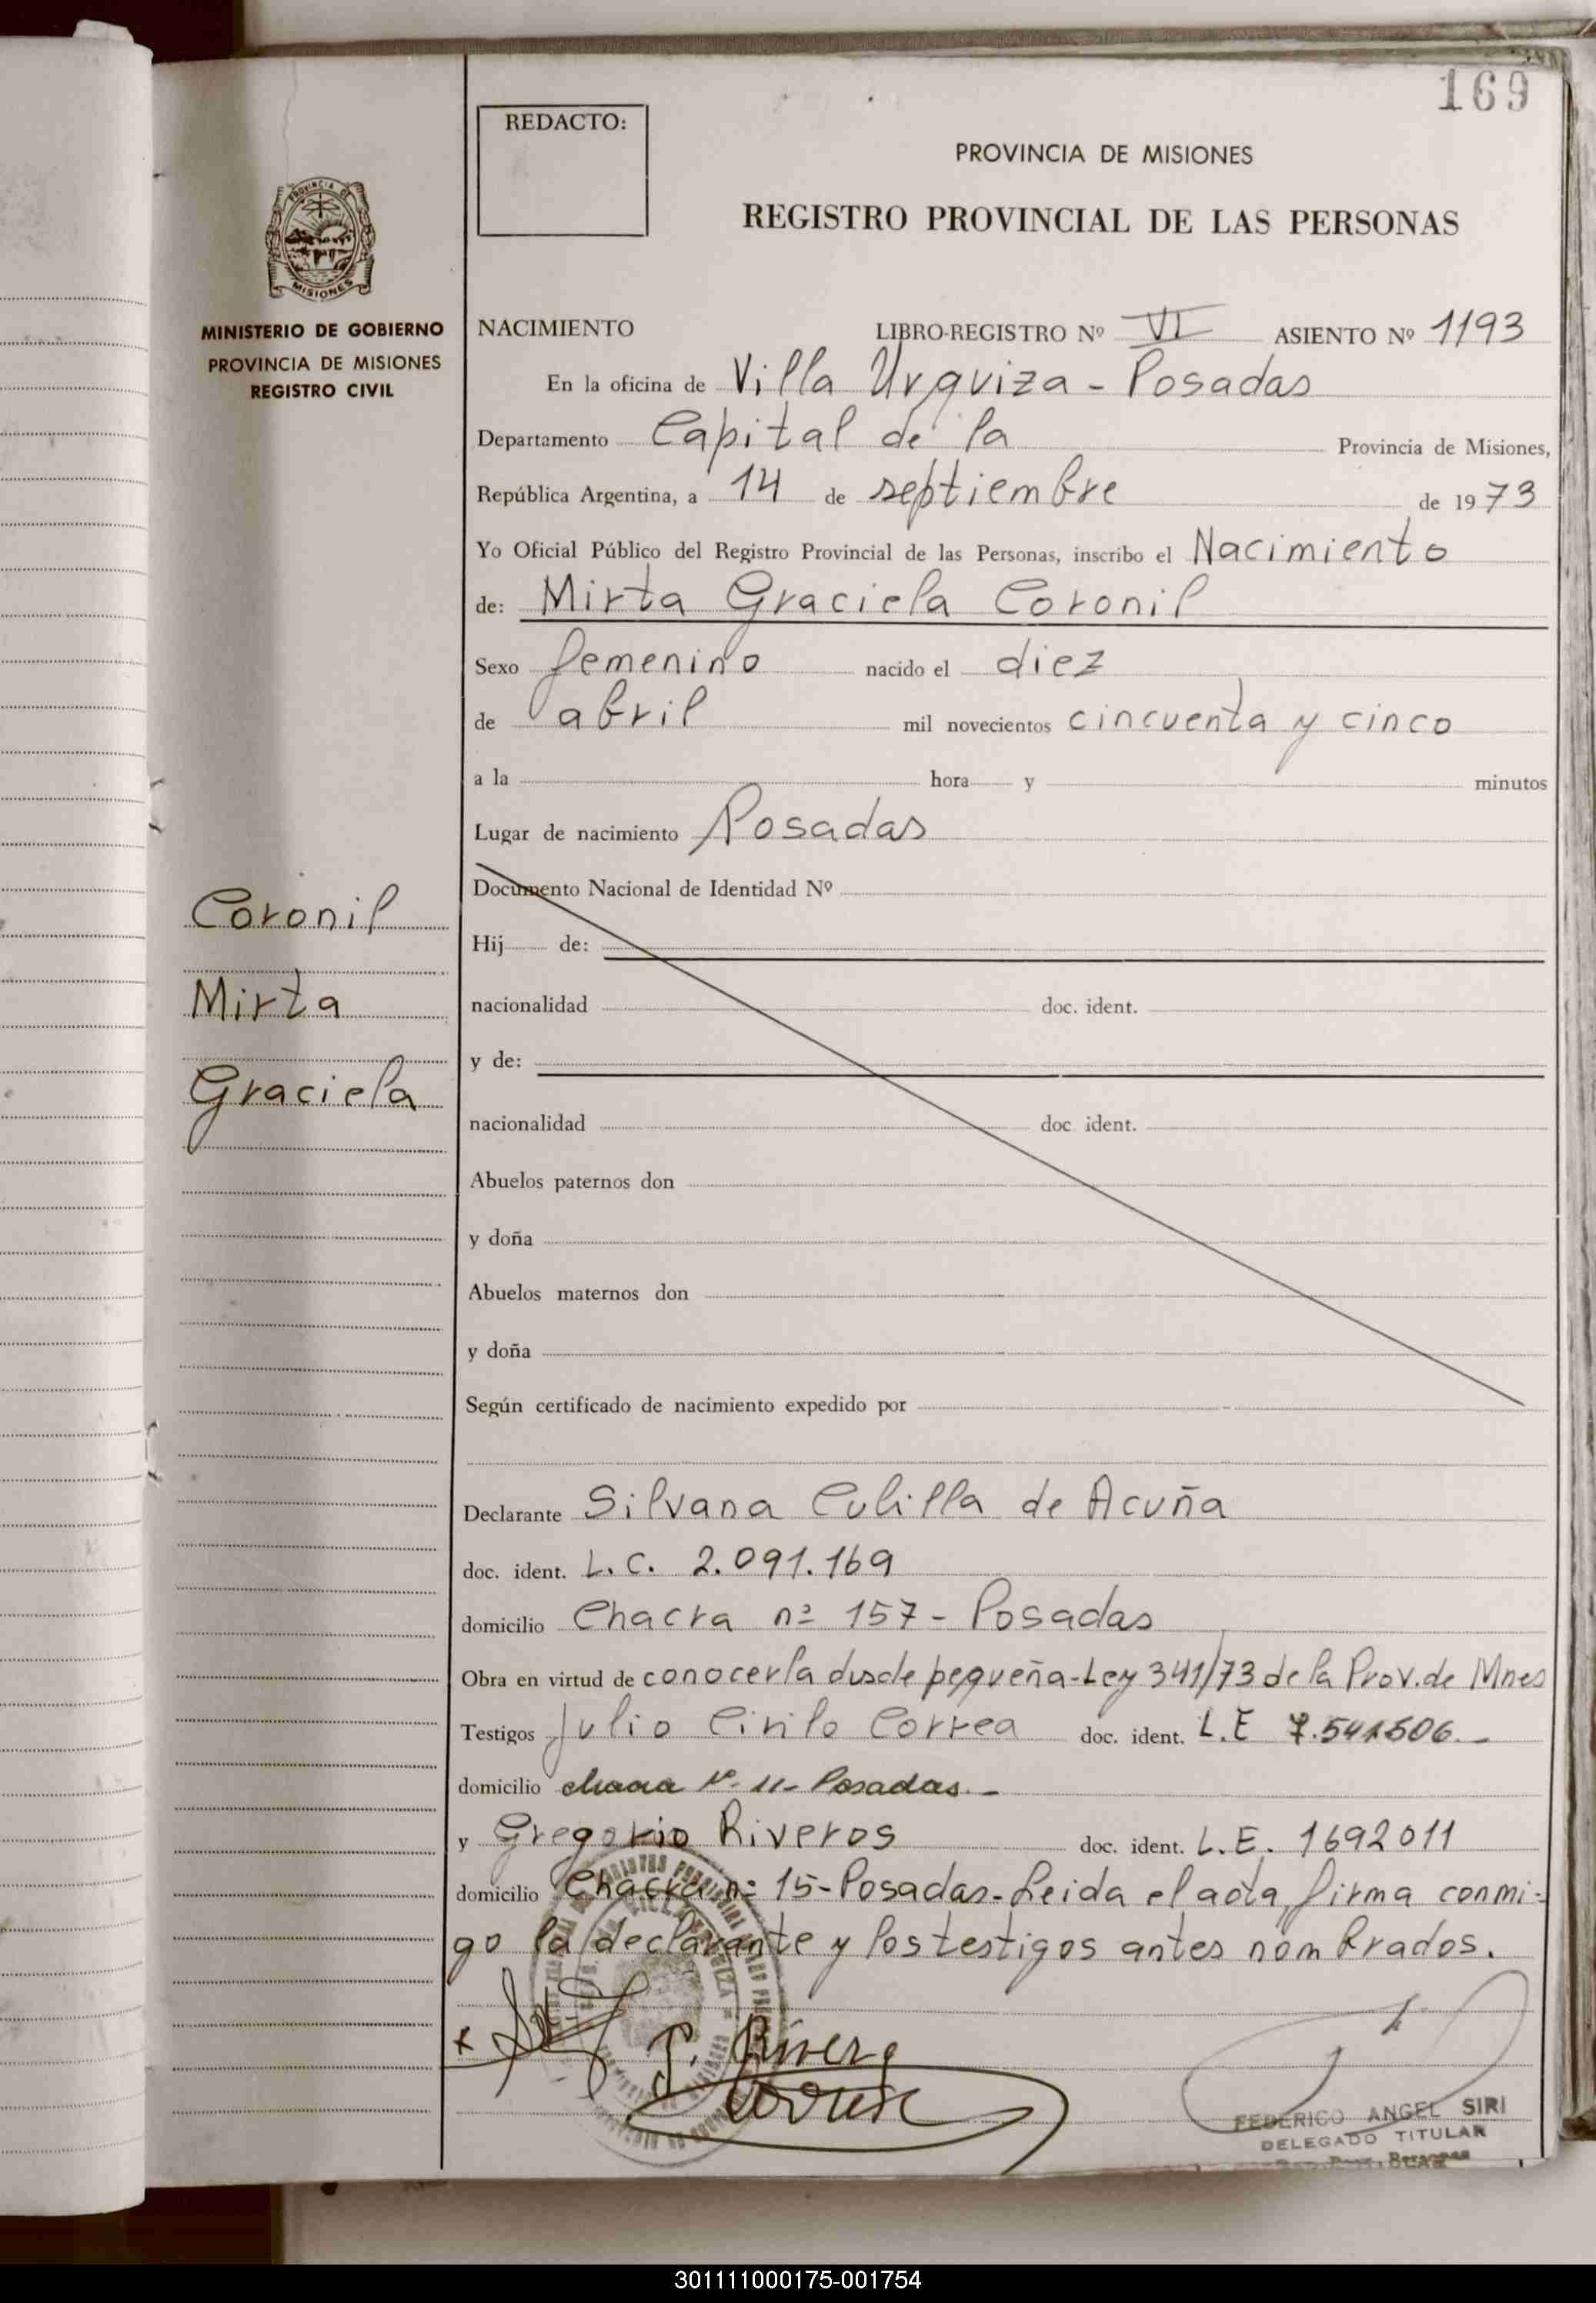 169
REDACTO:
PROVINCIA DE MISIONES
REGISTRO PROVINCIAL DE LAS PERSONAS
PROVINCIA DE
MISIONES
MINISTERIO DE GOBIERNO
PROVINCIA DE MISIONES
REGISTRO CIVIL
NACIMIENTO LIBRO-REGISTRO Nº VI ASIENTO Nº 1193
En la oficina de Villa Urquiza - Posadas
Departamento Capital de la Provincia de Misiones,
República Argentina, a 14 de septiembre de 1973
Yo Oficial Público del Registro Provincial de las Personas, inscribo el Nacimiento
de: Mirta Graciela Coronil
Sexo femenino nacido el diez
de abril mil novecientos cincuenta y cinco
a la hora y minutos
Lugar de nacimiento Posadas
Documento Nacional de Identidad Nº
Coronil
Mirta
Graciela
Hij de:
nacionalidad doc. ident.
y de:
nacionalidad doc ident.
Abuelos paternos don
y doña
Abuelos maternos don
y doña
Según certificado de nacimiento expedido por
Declarante Silvana Cubilla de Acuña
doc. ident. L.C. 2.091.169
domicilio Chacra nº 157 - Posadas
Obra en virtud de conocerla desde pequeña - Ley 341/73 de la Prov. de Mnes
Testigos Julio Cirilo Correa doc. ident. L.E 7.541506.-
domicilio chacra Nº 11- Posadas.-
y Gregorio Riveros doc. ident. L.E. 1692011
domicilio Chacra nº 15 - Posadas - Leida el acta, firma conmi-
go la declarante y los testigos antes nombrados.
FEDERICO ANGEL SIRI
DELEGADO TITULAR
301111000175-001754